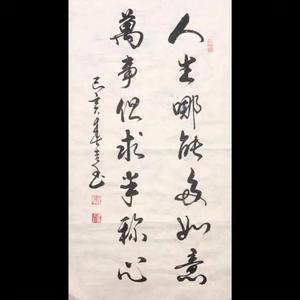 人生哪能多如意
萬事但求半称心
己亥年